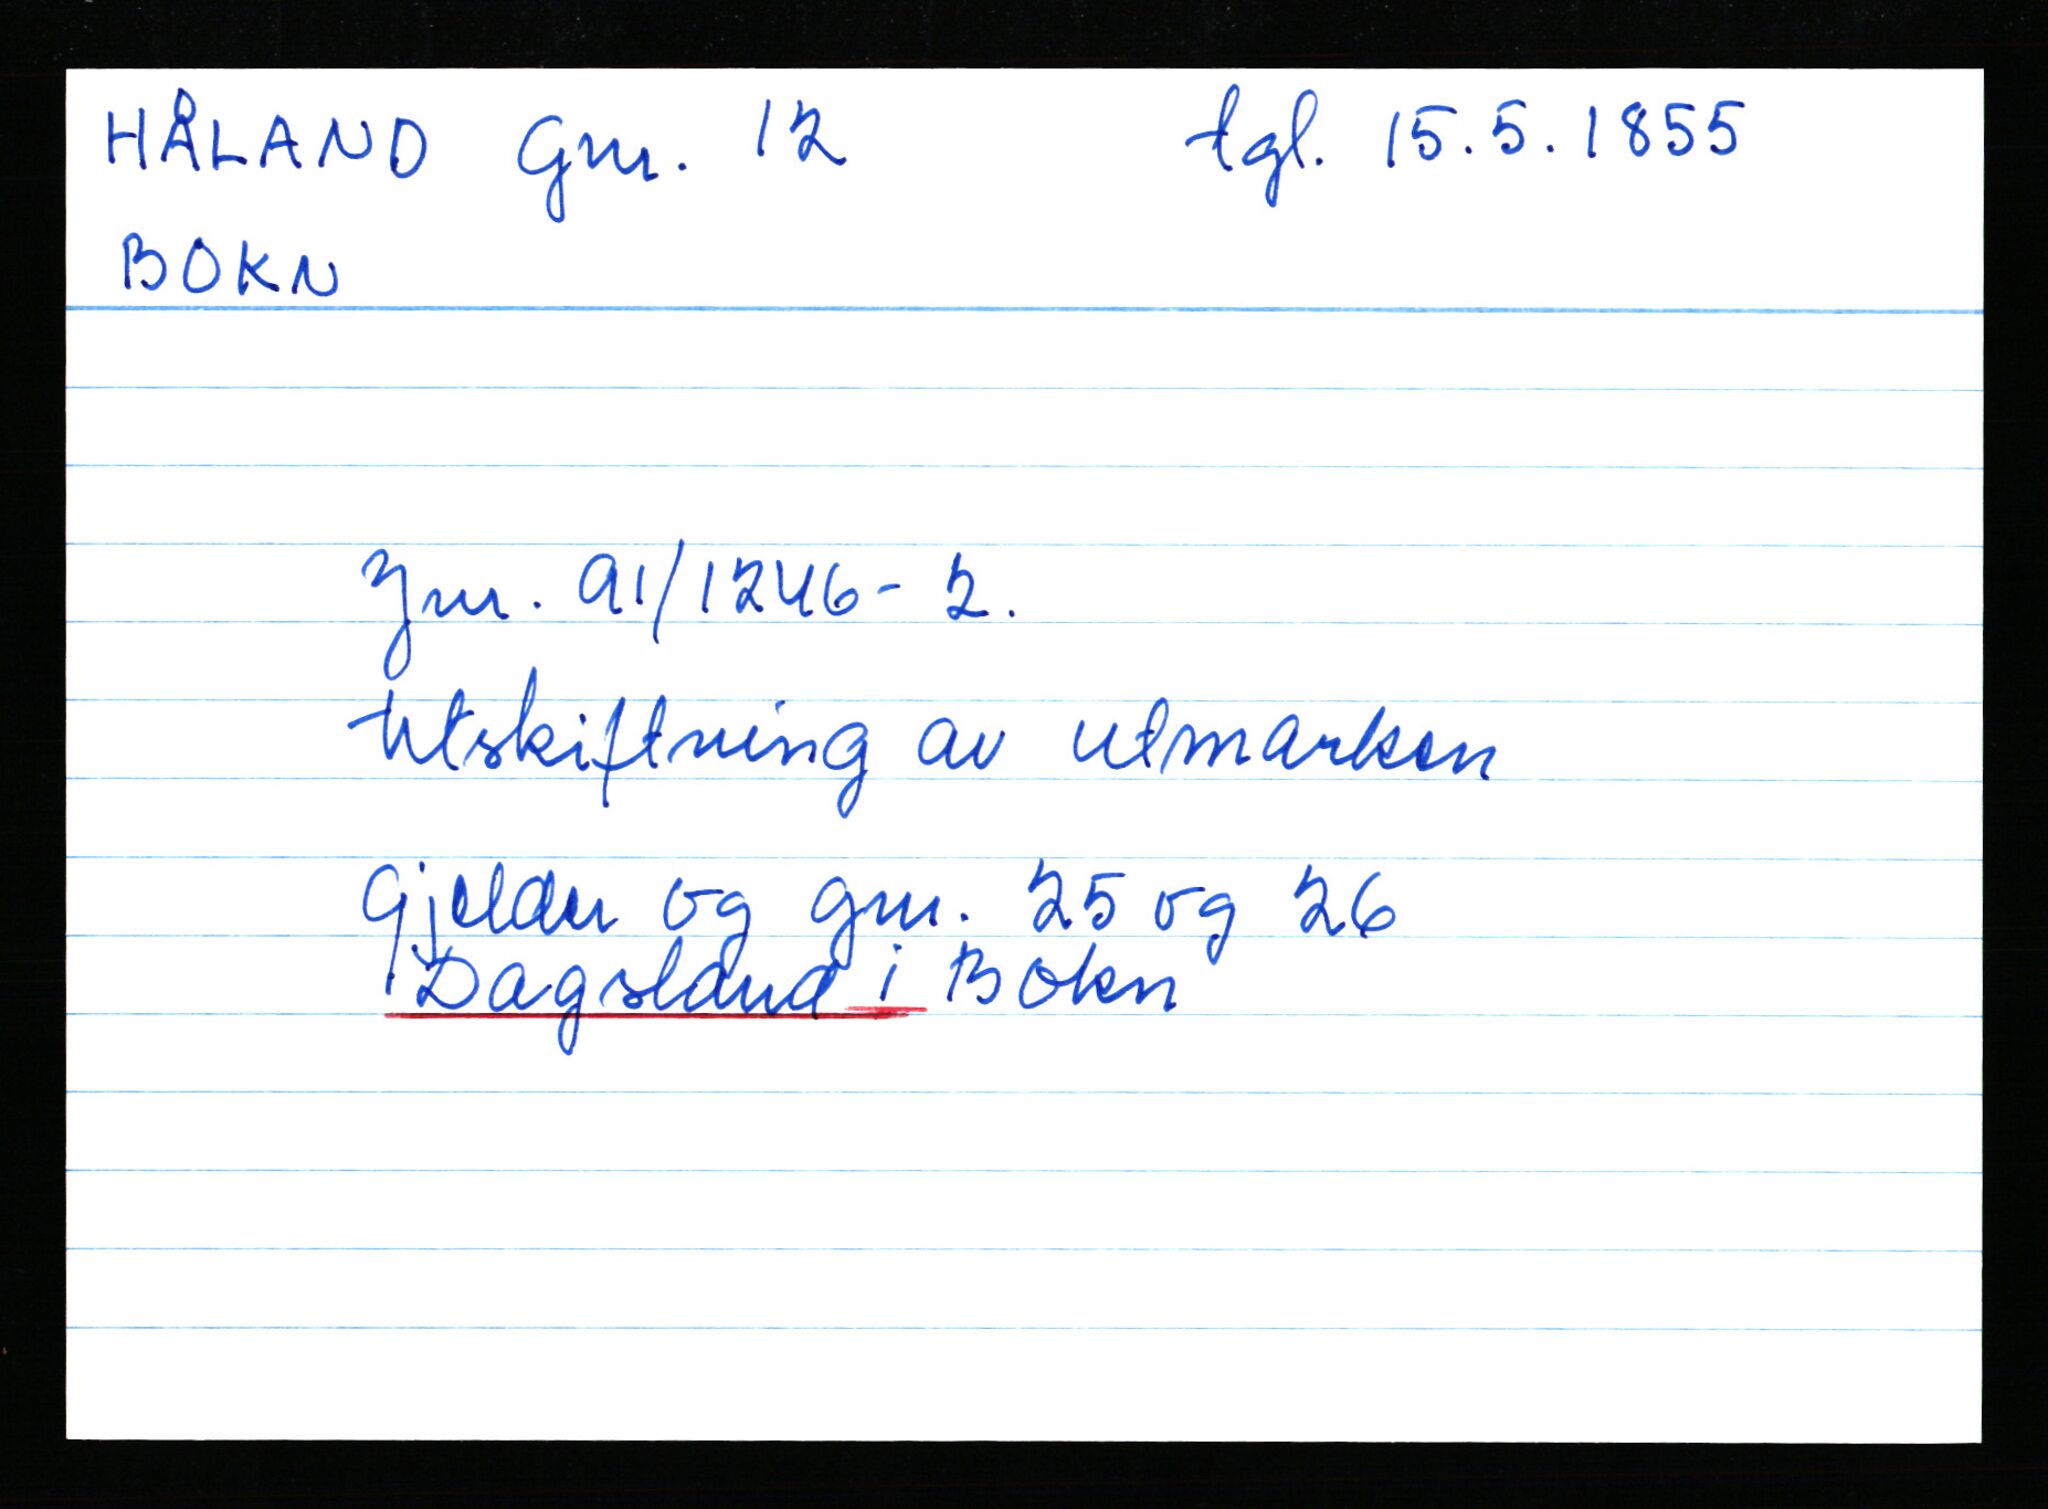 HÅLAND Gnr. 12 tgl. 15.5.1855
BOKN
Jnr. 91/1246-2.
Utskiftning av utmarken
Gjelder og gnr. 25 og 26
Dagsland i Bokn